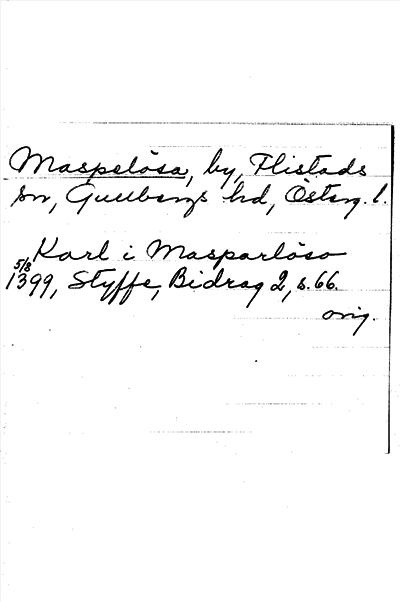 Maspelösa, by, Flistads
sn, Gullbergs hd, Österg. l.
Karl i Masparlöso
5/8 1399, Styffe, Bidrag 2, s. 66.
orig.